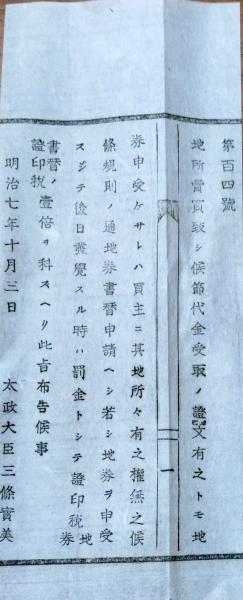 第百四號
地所賣買致シ候節代金受取ノ證文有之トモ地
券申受ケサレハ買主ニ其地所々有之權無之候
條規則ノ通地券書替申請ヘシ若シ地券ヲ申受
スシテ後日發覺スル時ハ罰金トシテ證印税地券
書替ノ證印税壹倍ヲ科スヘク此旨布告候事
明治七年十月三日
太政大臣三條實美
一